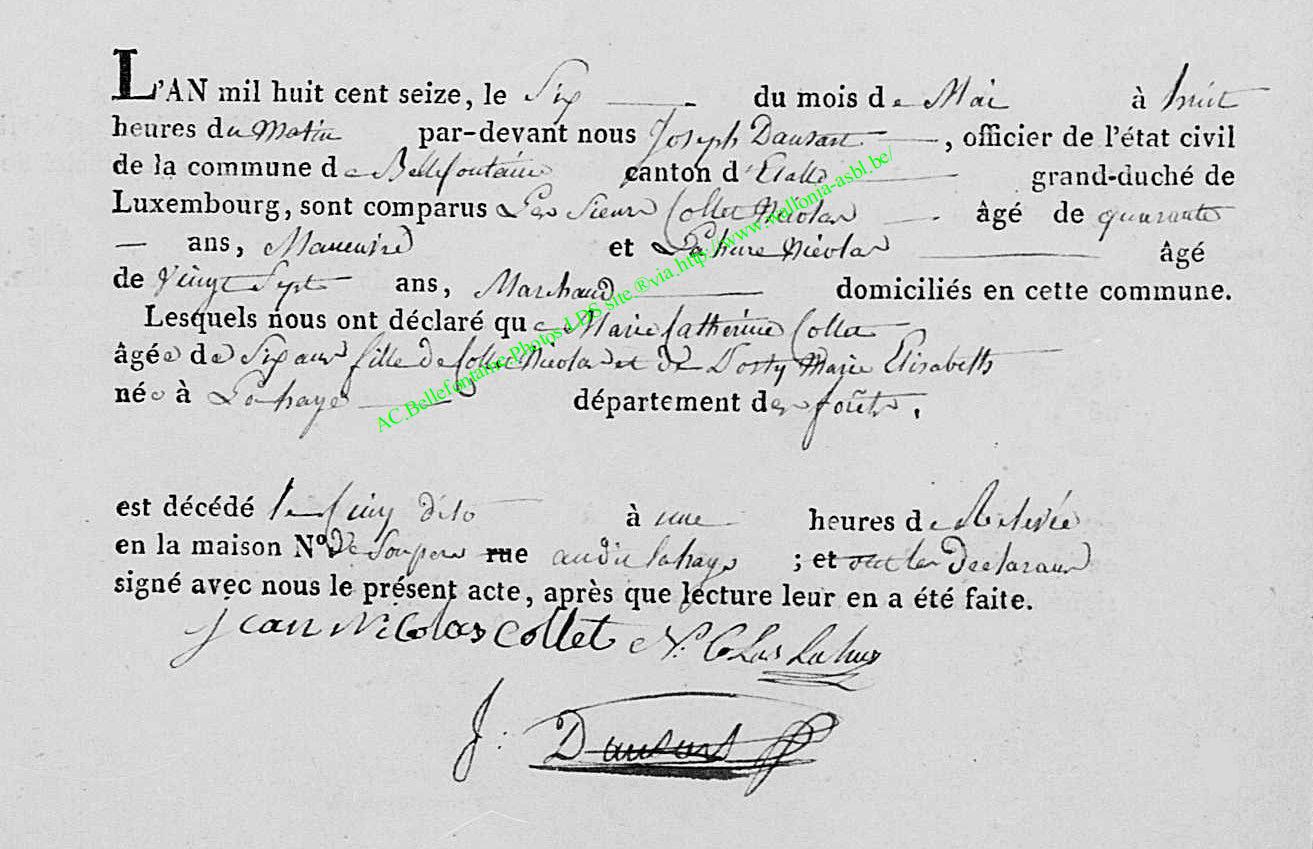 L'AN mil huit cent seize, le Six du mois de Mai à huit
heures du Matin par-devant nous Joseph Dausart, officier de l'état civil
de la commune de Bellefontaine canton d'Etalle grand-duché de
Luxembourg, sont comparus Les Sieurs Collet Nicolas âgé de quarante
ans, et Lahure Nicolas âgé
de Vingt Sept ans, Marchand domiciliés en cette commune.
Lesquels nous ont déclaré que Marie Catherine Collet
âgée de Six ans fille de Collet Nicolas et de Marie Elisabeth
née à Lahaye département des forêts,
est décédé le cinq dito à une heures de Relevée
en la maison Nº De rue audit lahaye ; et ont les Declarans
signé avec nous le présent acte, après que lecture leur en a été faite.
Jean Nicolas Collet Nicolas Lahure
J: Dausart
AC.Bellefontaine.Photos LDS site ®via.http://www.wallonia-asbl.be/